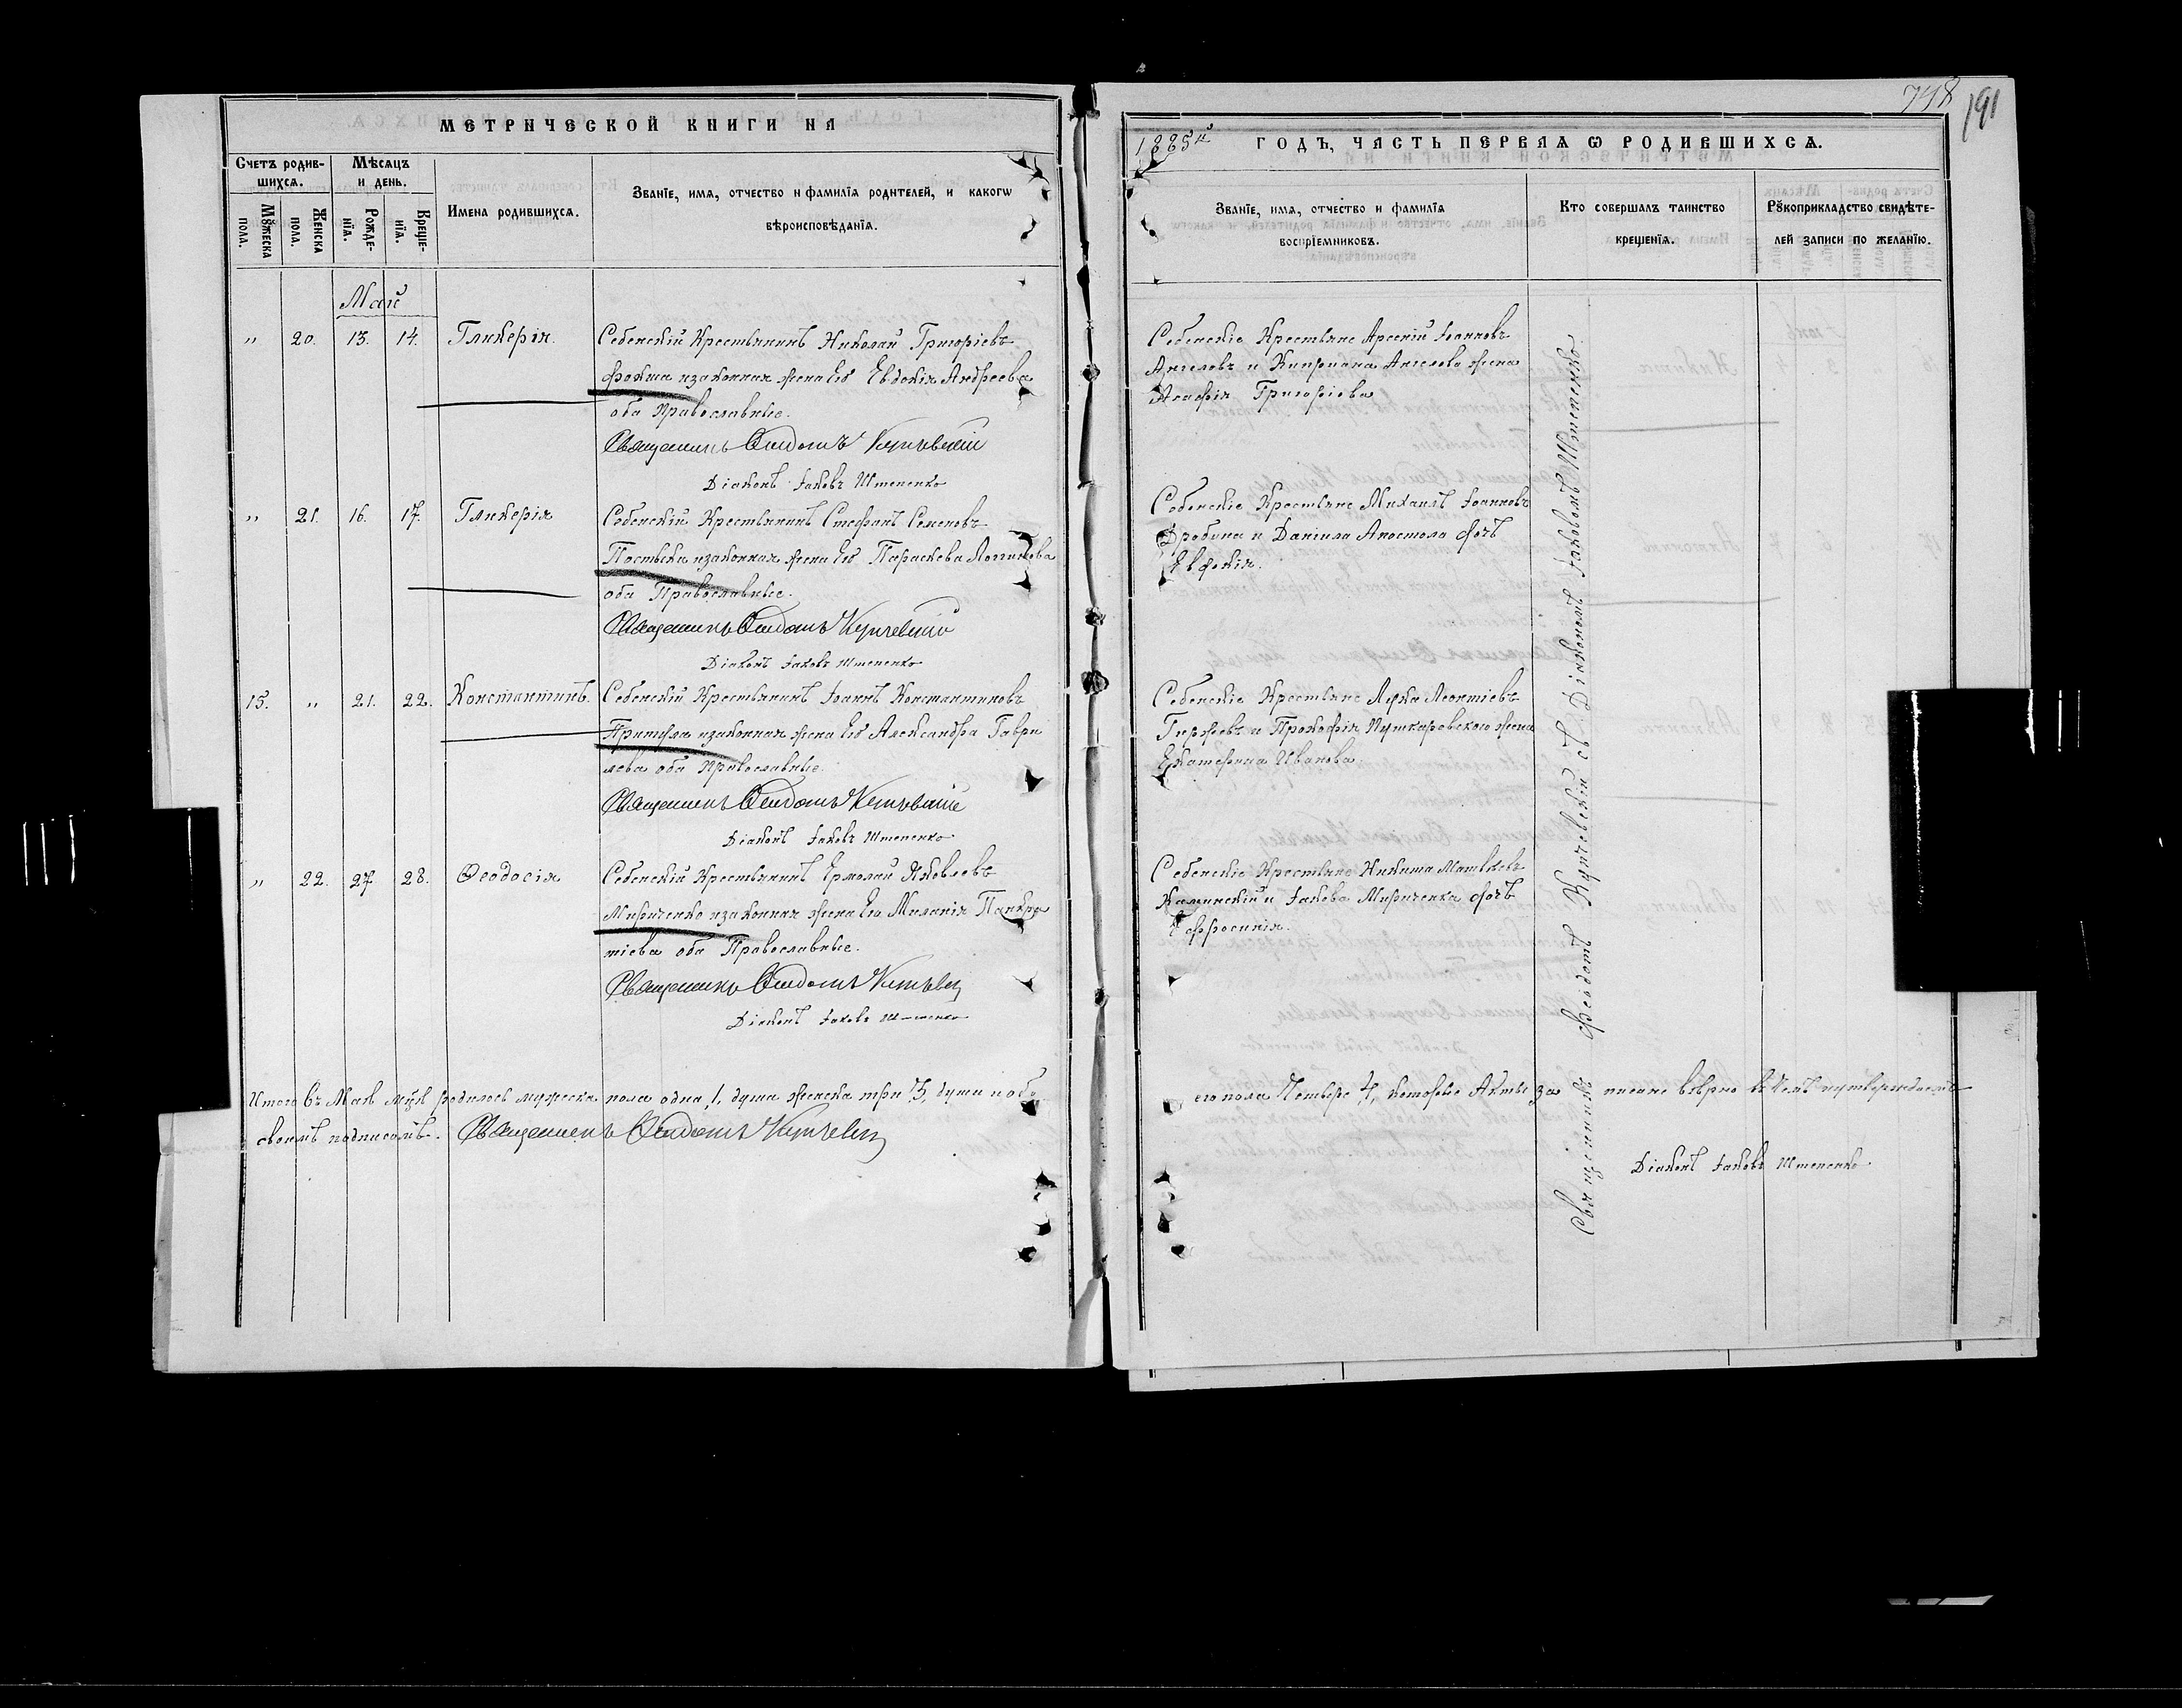 МЕТРИЧЕСКОЙ КНИГИ НА
Счетъ родив-
шихсѧ.
Мѣсѧцъ
и день.
Мꙋжеска
пола.
Женска
пола.
Рожде-
нїѧ.
Креще-
нїѧ.
Имена родившихсѧ.
Званїе, имѧ, отчество и фамилїѧ родителей, и какогѡ
вѣроисповѣданїѧ.
Май
" 20. 13. 14. Гликерія. Себенскій Крестьянинъ Николай Григоріевъ
Фокша изаконная жена Его Евдокія Андреева
оба Православные.
Священникъ Феодотъ Купчевскій
Діаконъ Іаковъ Штепенко
" 21. 16. 17. Гликерія Себенскій Крестьянинъ Стефанъ Семеновъ
изаконная жена Его Параскева Логгинова
оба Православные.
Священникъ Феодотъ Купчевскій
Діаконъ Іаковъ Штепенко
15. " 21. 22. Константинъ. Себенскій Крестьянинъ Іоаннъ Константиновъ
Притула изаконная жена Его Александра Гаври
лева оба Православные.
Священникъ Феодотъ Купчевскій
Діаконъ Іаковъ Штепенко
" 22. 27. 28. Ѳеодосія Себенскій Крестьянинъ Ермолай Яковлевъ
Мириченко изаконная жена Его Миланія Панкра
тіева оба Православные.
Священникъ Феодотъ Купчевскій
Діаконъ Іаковъ Штепенко
Итого въ Маѣ мцѣ родилось мужеска пола одна ,1, душа женска три ,3, души и обо
своимъ подписомъ. Священникъ Феодотъ Купчевскій
748
191
1885й ГОДЪ, ЧАСТЬ ПЕРВАѦ Ѡ РОДИВШИХСѦ.
Званїе, имѧ, отчество и фамилїѧ
воспрїемниковъ.
Кто совершалъ таинство
крещенїѧ.
Рꙋкоприкладство свидѣте-
лей записи по желанїю.
Себенскіе Крестьяне Арсеній Іоанновъ
Ангеловъ и Киприана Ангелова жена
Агафія Григоріева
Себенскіе Крестьяне Михаилъ Іоанновъ
Дробина и Даніила Апостола дочь
Евдокія.
Себенскіе Крестьяне Лука Леонтіевъ
и Прокофія Пушкаровскаго жена
Екатерина Иванова
Себенскіе Крестьяне Никита Матвѣевъ
Каминскій и Іакова Мириченка дочь
Ефросинія.
Священникъ Феодотъ Купчевскій съ Діакономъ Іаковомъ Штепенко
его пола Четыре ,4, которые Акты за писане вѣрно въ чемъ и утверждаемъ
Діаконъ Іаковъ Штепенко